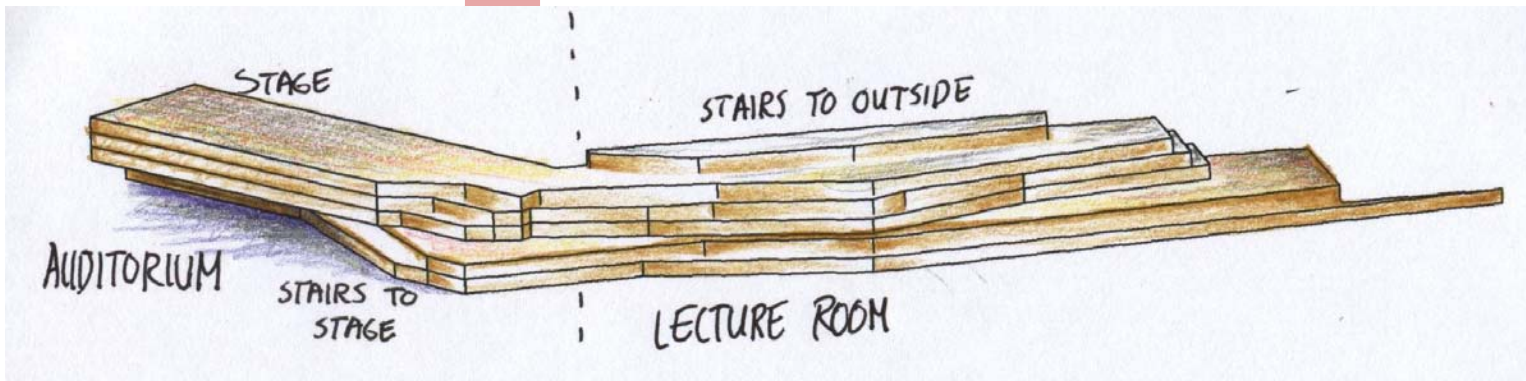 STAGE
STAIRS TO OUTSIDE
AUDITORIUM
STAIRS TO
STAGE
LECTURE ROOM